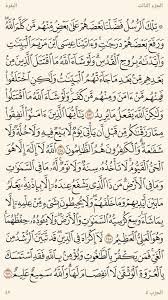 الجزء الثالث البقرة
۞ تِلْكَ ٱلرُّسُلُ فَضَّلْنَا بَعْضَهُمْ عَلَىٰ بَعْضٍ مِّنْهُم مَّن كَلَّمَ ٱللَّهُ
وَرَفَعَ بَعْضَهُمْ دَرَجَٰتٍ وَءَاتَيْنَا عِيسَى ٱبْنَ مَرْيَمَ ٱلْبَيِّنَٰتِ
وَأَيَّدْنَٰهُ بِرُوحِ ٱلْقُدُسِ وَلَوْ شَآءَ ٱللَّهُ مَا ٱقْتَتَلَ ٱلَّذِينَ مِنۢ
بَعْدِهِم مِّنۢ بَعْدِ مَا جَآءَتْهُمُ ٱلْبَيِّنَٰتُ وَلَٰكِنِ ٱخْتَلَفُوا۟
فَمِنْهُم مَّنْ ءَامَنَ وَمِنْهُم مَّن كَفَرَ وَلَوْ شَآءَ ٱللَّهُ مَا ٱقْتَتَلُوا۟
وَلَٰكِنَّ ٱللَّهَ يَفْعَلُ مَا يُرِيدُ ٢٥٣ يَٰٓأَيُّهَا ٱلَّذِينَ ءَامَنُوٓا۟ أَنفِقُوا۟
مِمَّا رَزَقْنَٰكُم مِّن قَبْلِ أَن يَأْتِىَ يَوْمٌ لَّا بَيْعٌ فِيهِ وَلَا خُلَّةٌ
وَلَا شَفَٰعَةٌ وَٱلْكَٰفِرُونَ هُمُ ٱلظَّٰلِمُونَ ٢٥٤ ٱللَّهُ لَآ إِلَٰهَ إِلَّا هُوَ
ٱلْحَىُّ ٱلْقَيُّومُ لَا تَأْخُذُهُۥ سِنَةٌ وَلَا نَوْمٌ لَّهُۥ مَا فِى ٱلسَّمَٰوَٰتِ
وَمَا فِى ٱلْأَرْضِ مَن ذَا ٱلَّذِى يَشْفَعُ عِندَهُۥٓ إِلَّا بِإِذْنِهِۦ يَعْلَمُ
مَا بَيْنَ أَيْدِيهِمْ وَمَا خَلْفَهُمْ وَلَا يُحِيطُونَ بِشَىْءٍ مِّنْ عِلْمِهِۦٓ
إِلَّا بِمَا شَآءَ وَسِعَ كُرْسِيُّهُ ٱلسَّمَٰوَٰتِ وَٱلْأَرْضَ وَلَا يَـُٔودُهُۥ حِفْظُهُمَا
وَهُوَ ٱلْعَلِىُّ ٱلْعَظِيمُ ٢٥٥ لَآ إِكْرَاهَ فِى ٱلدِّينِ قَد تَّبَيَّنَ ٱلرُّشْدُ مِنَ
ٱلْغَىِّ فَمَن يَكْفُرْ بِٱلطَّٰغُوتِ وَيُؤْمِنۢ بِٱللَّهِ فَقَدِ ٱسْتَمْسَكَ
بِٱلْعُرْوَةِ ٱلْوُثْقَىٰ لَا ٱنفِصَامَ لَهَا وَٱللَّهُ سَمِيعٌ عَلِيمٌ ٢٥٦
الحزب ٥ ٤٢